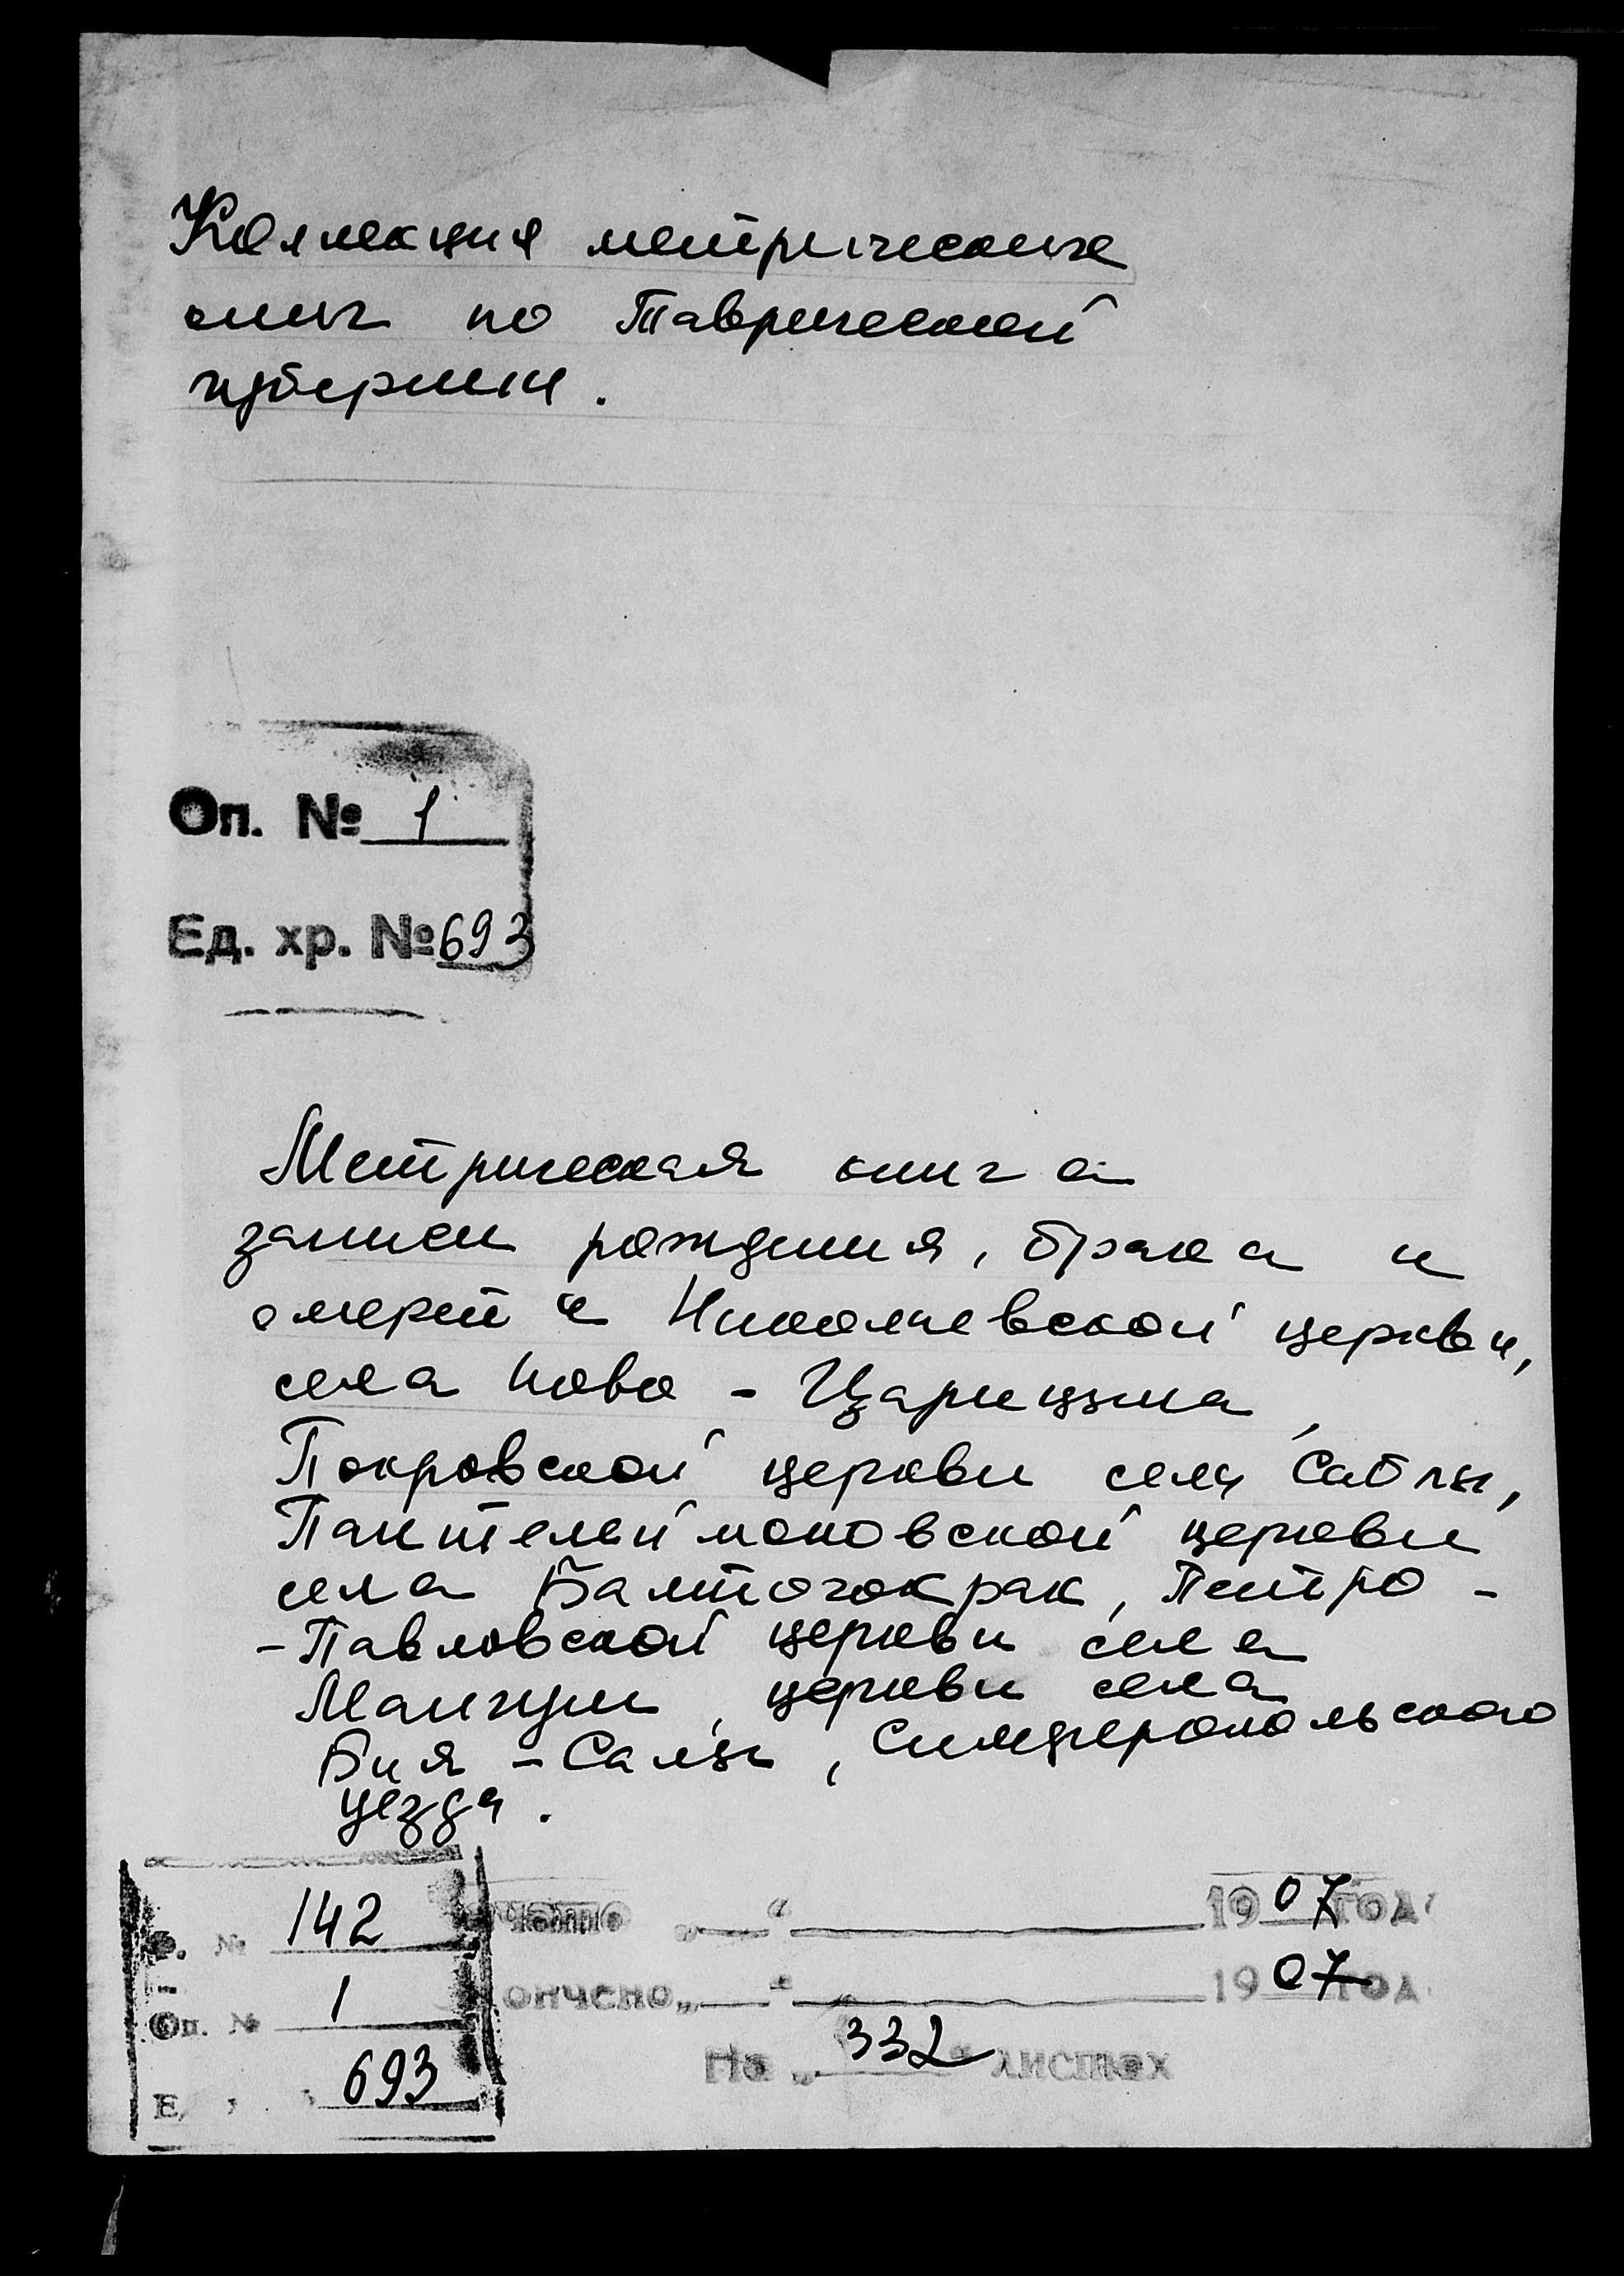 Коллекция метрических
книг по Таврической
губернии.
Оп. № 1
Ед. хр. № 693
Метрическая книга
записи рождения, брака и
смерти Николаевской церкви,
села Ново - Царицына,
Покровской церкви села Саблы,
Пантелеймоновской церкви
села Балтачокрак, Петро -
- Павловской церкви села
Мангуш, церкви села
Бия - Салы, Симферопольского
уезда.
Ф. № 142
Оп. № 1
Е. 693
чато „ “ 1907 год
ончено „ “ 1907 год
На „ 332 “ листах